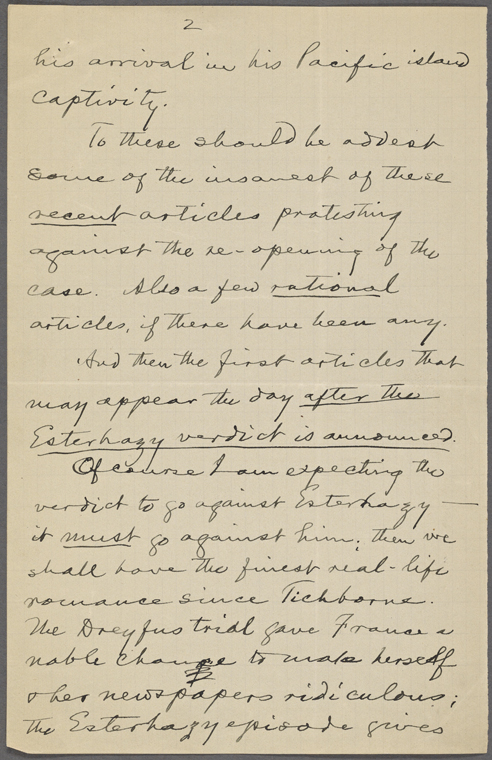 2
his arrival in his Pacific island
captivity.
To these should be addest
some of the insanest of these
recent articles protesting
against the re-opening of the
case. Also a few rational
articles, if there have been any.
And then the first articles that
may appear the day after the
Esterhazy verdict is announced.
Of course I am expecting the
verdict to go against Esterhazy —
it must go against him; then we
shall have the finest real-life
romance since Tichborne.
The Dreyfus trial gave France a
noble chance to make herself
& her newspapers ridiculous;
the Esterhazy episode gives